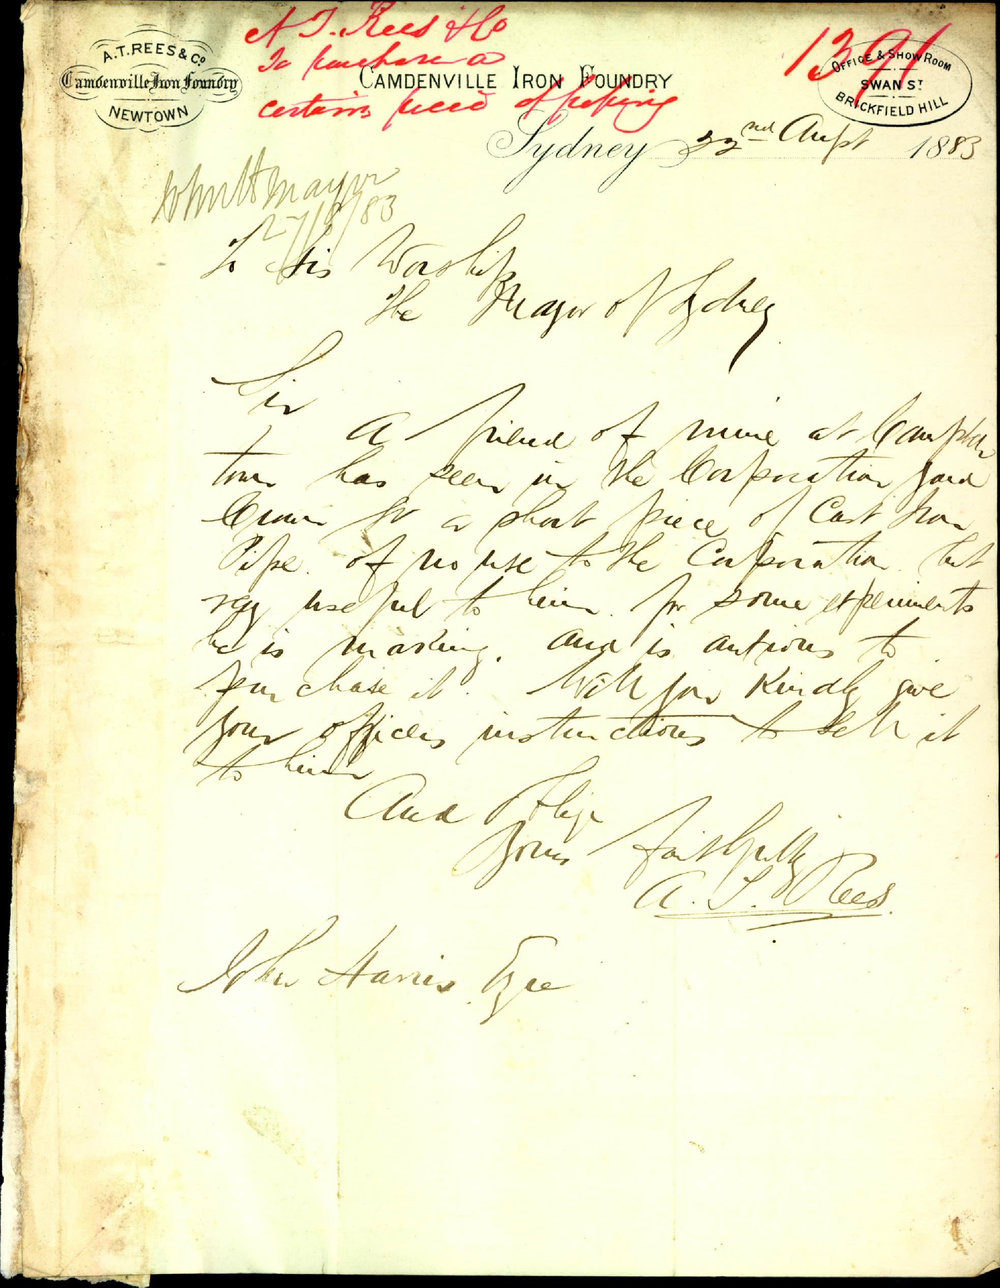 A.T. REES & Co
Camdenville Iron Foundry
NEWTOWN
A T. Rees & Co
To purchase a
certain piece of piping
CAMDENVILLE IRON FOUNDRY
1391
OFFICE & SHOW ROOM
SWAN ST
BRICKFIELD HILL
Sydney 22nd Augst 1883
John H Mayor
27/8/83
To His Worship
The Mayor of Sydney
Sir
A friend of mine at Campbell
town has seen in the Corporation yard
Crown St a short piece of Cast Iron
Pipe. of no use to the Corporation but
very useful to him for some experiments
he is making. and is anxious to
purchase it. Will you Kindly give
your officers instructions to sell it
to him
And oblige
Yours faithfully
A. T. Rees
John Harris Esqre